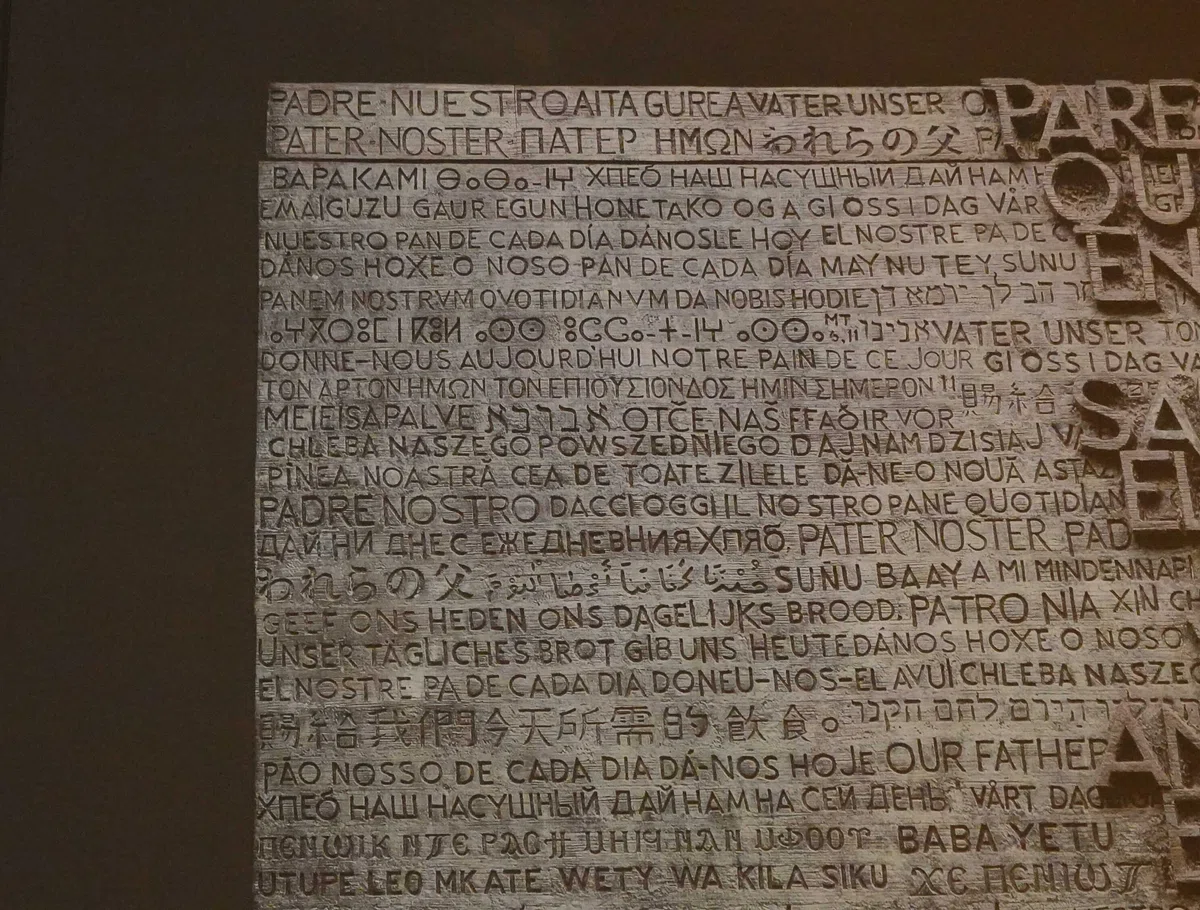 PADRE·NUESTRO AITA GUREA VATER UNSER
PATER·NOSTER·ΠΑΤΕΡ ΗΜΩΝ われらの父
BAPAKAMI ⴱⴰⴱⴰ-ⵏⵖ ХЛЕБ НАШ НАСУЩНЫЙ ДАЙ НАМ
EMAIGUZU GAUR EGUN HONETAKO OG A GI OSS I DAG VÅR
NUESTRO PAN DE CADA DÍA DÁNOSLE HOY EL NOSTRE PA DE
DÁNOS HOXE O NOSO PAN DE CADA DÍA MAY NU TEY, SUNU
PANEM NOSTRVM QVOTIDIANVM DA NOBIS HODIE הב לן יומא דן
MT 6,11 אבינו VATER UNSER
DONNE-NOUS AUJOURD'HUI NOTRE PAIN DE CE JOUR GI OSS I DAG
ΤΟΝ ΑΡΤΟΝ ΗΜΩΝ ΤΟΝ ΕΠΙΟΥΣΙΟΝ ΔΟΣ ΗΜΙΝ ΣΗΜΕΡΟΝ 11 賜給
MEIE ISA PALVE OTČE NAŠ FFAÐIR VOR
CHLEBA NASZEGO POWSZEDNIEGO DAJ NAM DZISIAJ
PÎINEA NOASTRĂ CEA DE TOATE ZILELE DĂ-NE-O NOUĂ ASTĂZ
PADRE NOSTRO DACCI OGGI IL NOSTRO PANE QUOTIDIAN
ДАЙ НИ ДНЕС ЕЖЕДНЕВНИЯ ХЛЯБ. PATER NOSTER PAD
われらの父 SUÑU BAAY A MI MINDENNAPI
GEEF ONS HEDEN ONS DAGELIJKS BROOD. PATRO NIA XIN
UNSER TÄGLICHES BROT GIB UNS HEUTE DÁNOS HOXE O NOSO
EL NOSTRE PA DE CADA DIA DONEU-NOS-EL AVUI CHLEBA NASZEG
賜給我們今天所需的飲食。 היום לחם חקנו
PÃO NOSSO DE CADA DIA DÁ-NOS HOJE OUR FATHER
ХЛЕБ НАШ НАСУЩНЫЙ ДАЙ НАМ НА СЕЙ ДЕНЬ; VÅRT DAG
ⲠⲈⲚⲰⲒⲔ ⲚⲦⲈ ⲢⲀⲤϮ ⲘⲎⲒϤ ⲚⲀⲚ ⲘⲪⲞⲞⲨ BABA YETU
UTUPE LEO MKATE WETU WA KILA SIKU ϪⲈ ⲠⲈⲚⲒⲰⲦ
PARE
QU
EN
SA
EL
AN